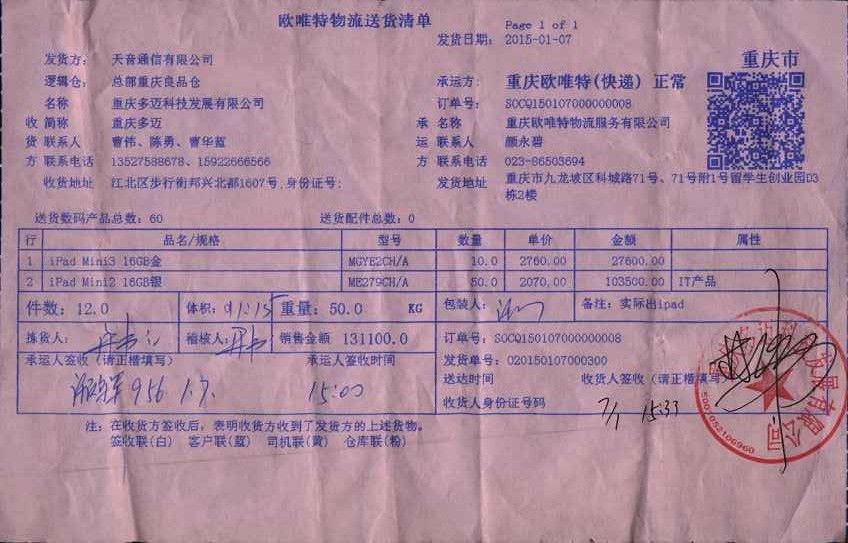 欧唯特物流送货清单
Page 1 of 1
发货日期: 2015-01-07
发货方: 天音通信有限公司
重庆市
逻辑仓: 总部重庆良品仓
承运方: 重庆欧唯特(快递) 正常
名称 重庆多迈科技发展有限公司
订单号: SOCQ150107000000008
收 简称 重庆多迈
承 名称: 重庆欧唯特物流服务有限公司
货 联系人 曹伟、陈勇、曹华蓝
运 联系人: 颜永碧
方 联系电话 13527588678、15922666566
方 联系电话: 023-86503694
收货地址 江北区步行街邦兴北都1607号,身份证号:
发货地址 重庆市九龙坡区科城路71号、71号附1号留学生创业园D3栋2楼
送货数码产品总数: 60 送货配件总数: 0
行 品名/规格 型号 数量 单价 金额 属性
1 iPad Mini3 16GB金 MGYE2CH/A 10.0 2760.00 27600.00
2 iPad Mini2 16GB银 ME279CH/A 50.0 2070.00 103500.00 IT产品
件数: 12.0 体积: 重量: 50.0 KG 包装人: 备注: 实际出ipad
拣货人: 稽核人: 销售金额 131100.0 订单号: SOCQ150107000000008
承运人签收 (请正楷填写) 承运人签收时间 发货单号: 020150107000300
956 1.7. 15:00
送达时间 收货人签收 (请正楷填写)
收货人身份证号码
7/1 15:33
注: 在收货方签收后, 表明收货方收到了发货方的上述货物。
签收联(白) 客户联(蓝) 司机联(黄) 仓库联(粉)
5001052106960